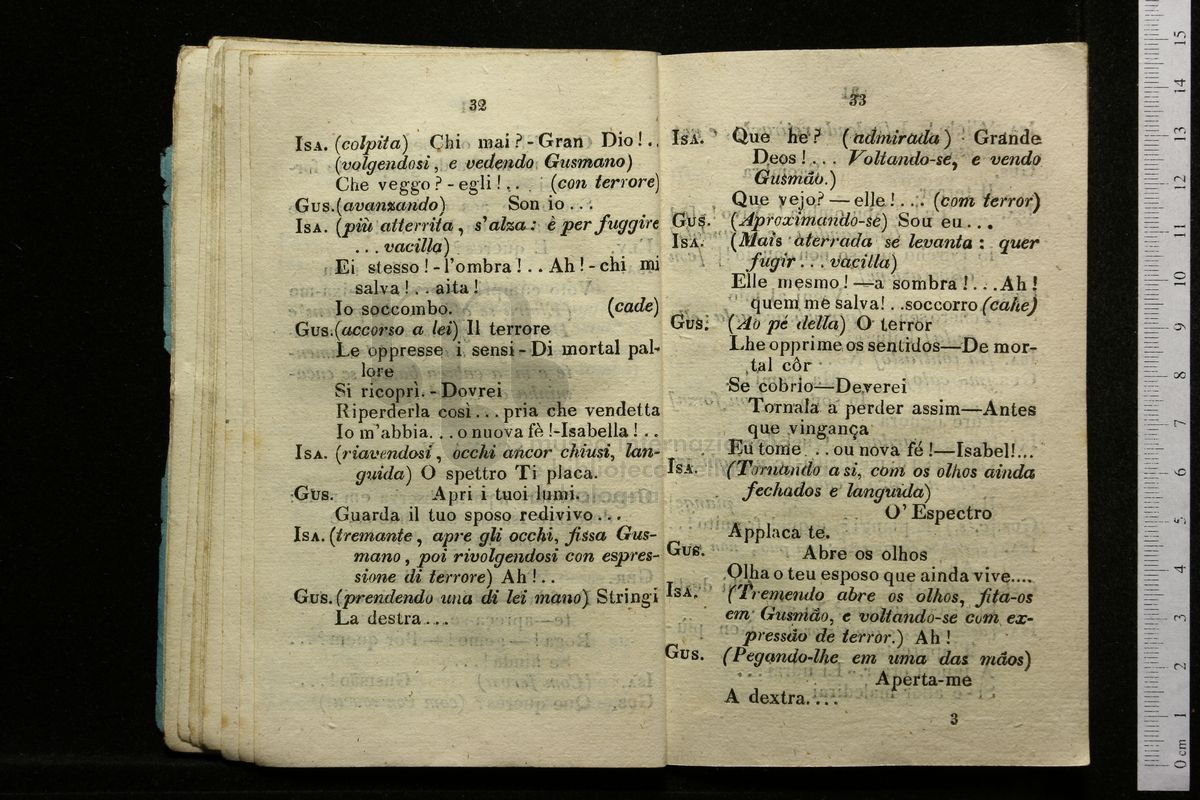 32
Isa. (colpita) Chi mai? - Gran Dio!..
(volgendosi, e vedendo Gusmano)
Che veggo? - egli!.. (con terrore)
Gus. (avanzando) Son io...
Isa. (più atterrita, s'alza: è per fuggire
...vacilla)
Ei stesso! - l'ombra!.. Ah! - chi mi
salva!.. aita!
Io soccombo. (cade)
Gus. (accorso a lei) Il terrore
Le oppresse i sensi - Di mortal pal-
lore
Si ricoprì. - Dovrei
Riperderla così... pria che vendetta
Io m'abbia... o nuova fè! - Isabella!..
Isa. (riavendosi, occhi ancor chiusi, lan-
guida) O spettro Ti placa.
Gus. Apri i tuoi lumi.
Guarda il tuo sposo redivivo...
Isa. (tremante, apre gli occhi, fissa Gus-
mano, poi rivolgendosi con espres-
sione di terrore) Ah!..
Gus. (prendendo una di lei mano) Stringi
La destra...
33
Isa. Que he? (admirada) Grande
Deos!... Voltando-se, e vendo
Gusmão.)
Que vejo? — elle!... (com terror)
Gus. (Aproximando-se) Sou eu...
Isa. (Mais aterrada se levanta: quer
fugir... vacilla)
Elle mesmo! — a sombra!... Ah!
quem me salva!..soccorro (cahe)
Gus. (Ao pé della) O terror
Lhe opprime os sentidos—De mor-
tal côr
Se cobrio—Deverei
Tornala a perder assim—Antes
que vingança
Eu tome... ou nova fé!—Isabel!...
Isa. (Tornando a si, com os olhos ainda
fechados e languida)
O' Espectro
Applaca te.
Gus. Abre os olhos
Olha o teu esposo que ainda vive....
Isa. (Tremendo abre os olhos, fita-os
em Gusmão, e voltando-se com ex-
pressão de terror.) Ah!
Gus. (Pegando-lhe em uma das mãos)
Aperta-me
A dextra....
3
0 cm 1 2 3 4 5 6 7 8 9 10 11 12 13 14 15